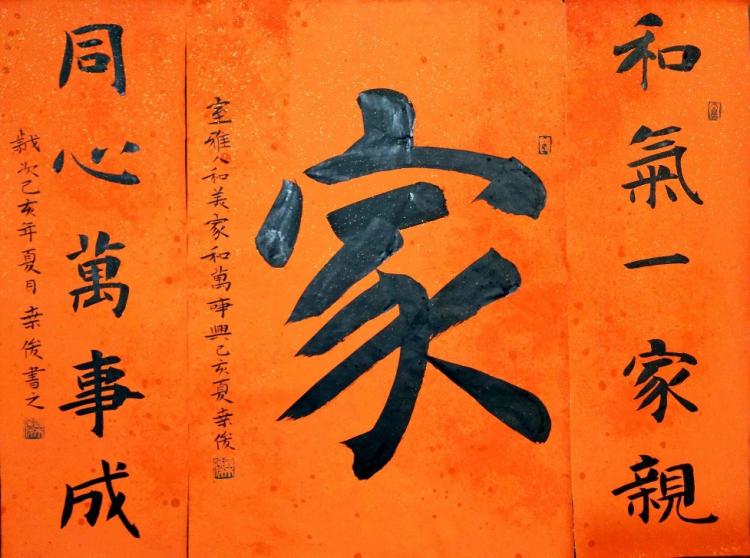 和氣一家親
家
室雅人和美家和萬事興己亥夏桒俊
同心萬事成
歲次己亥年夏月桒俊書之